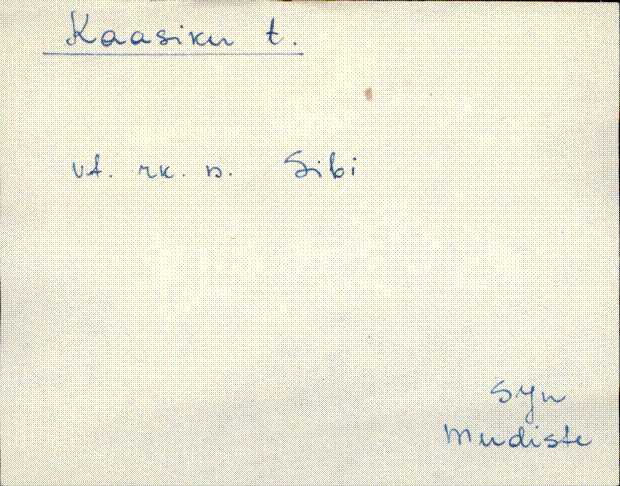 Kaasiku t.
vt. rk. n. Sibi
Syn
Mudiste